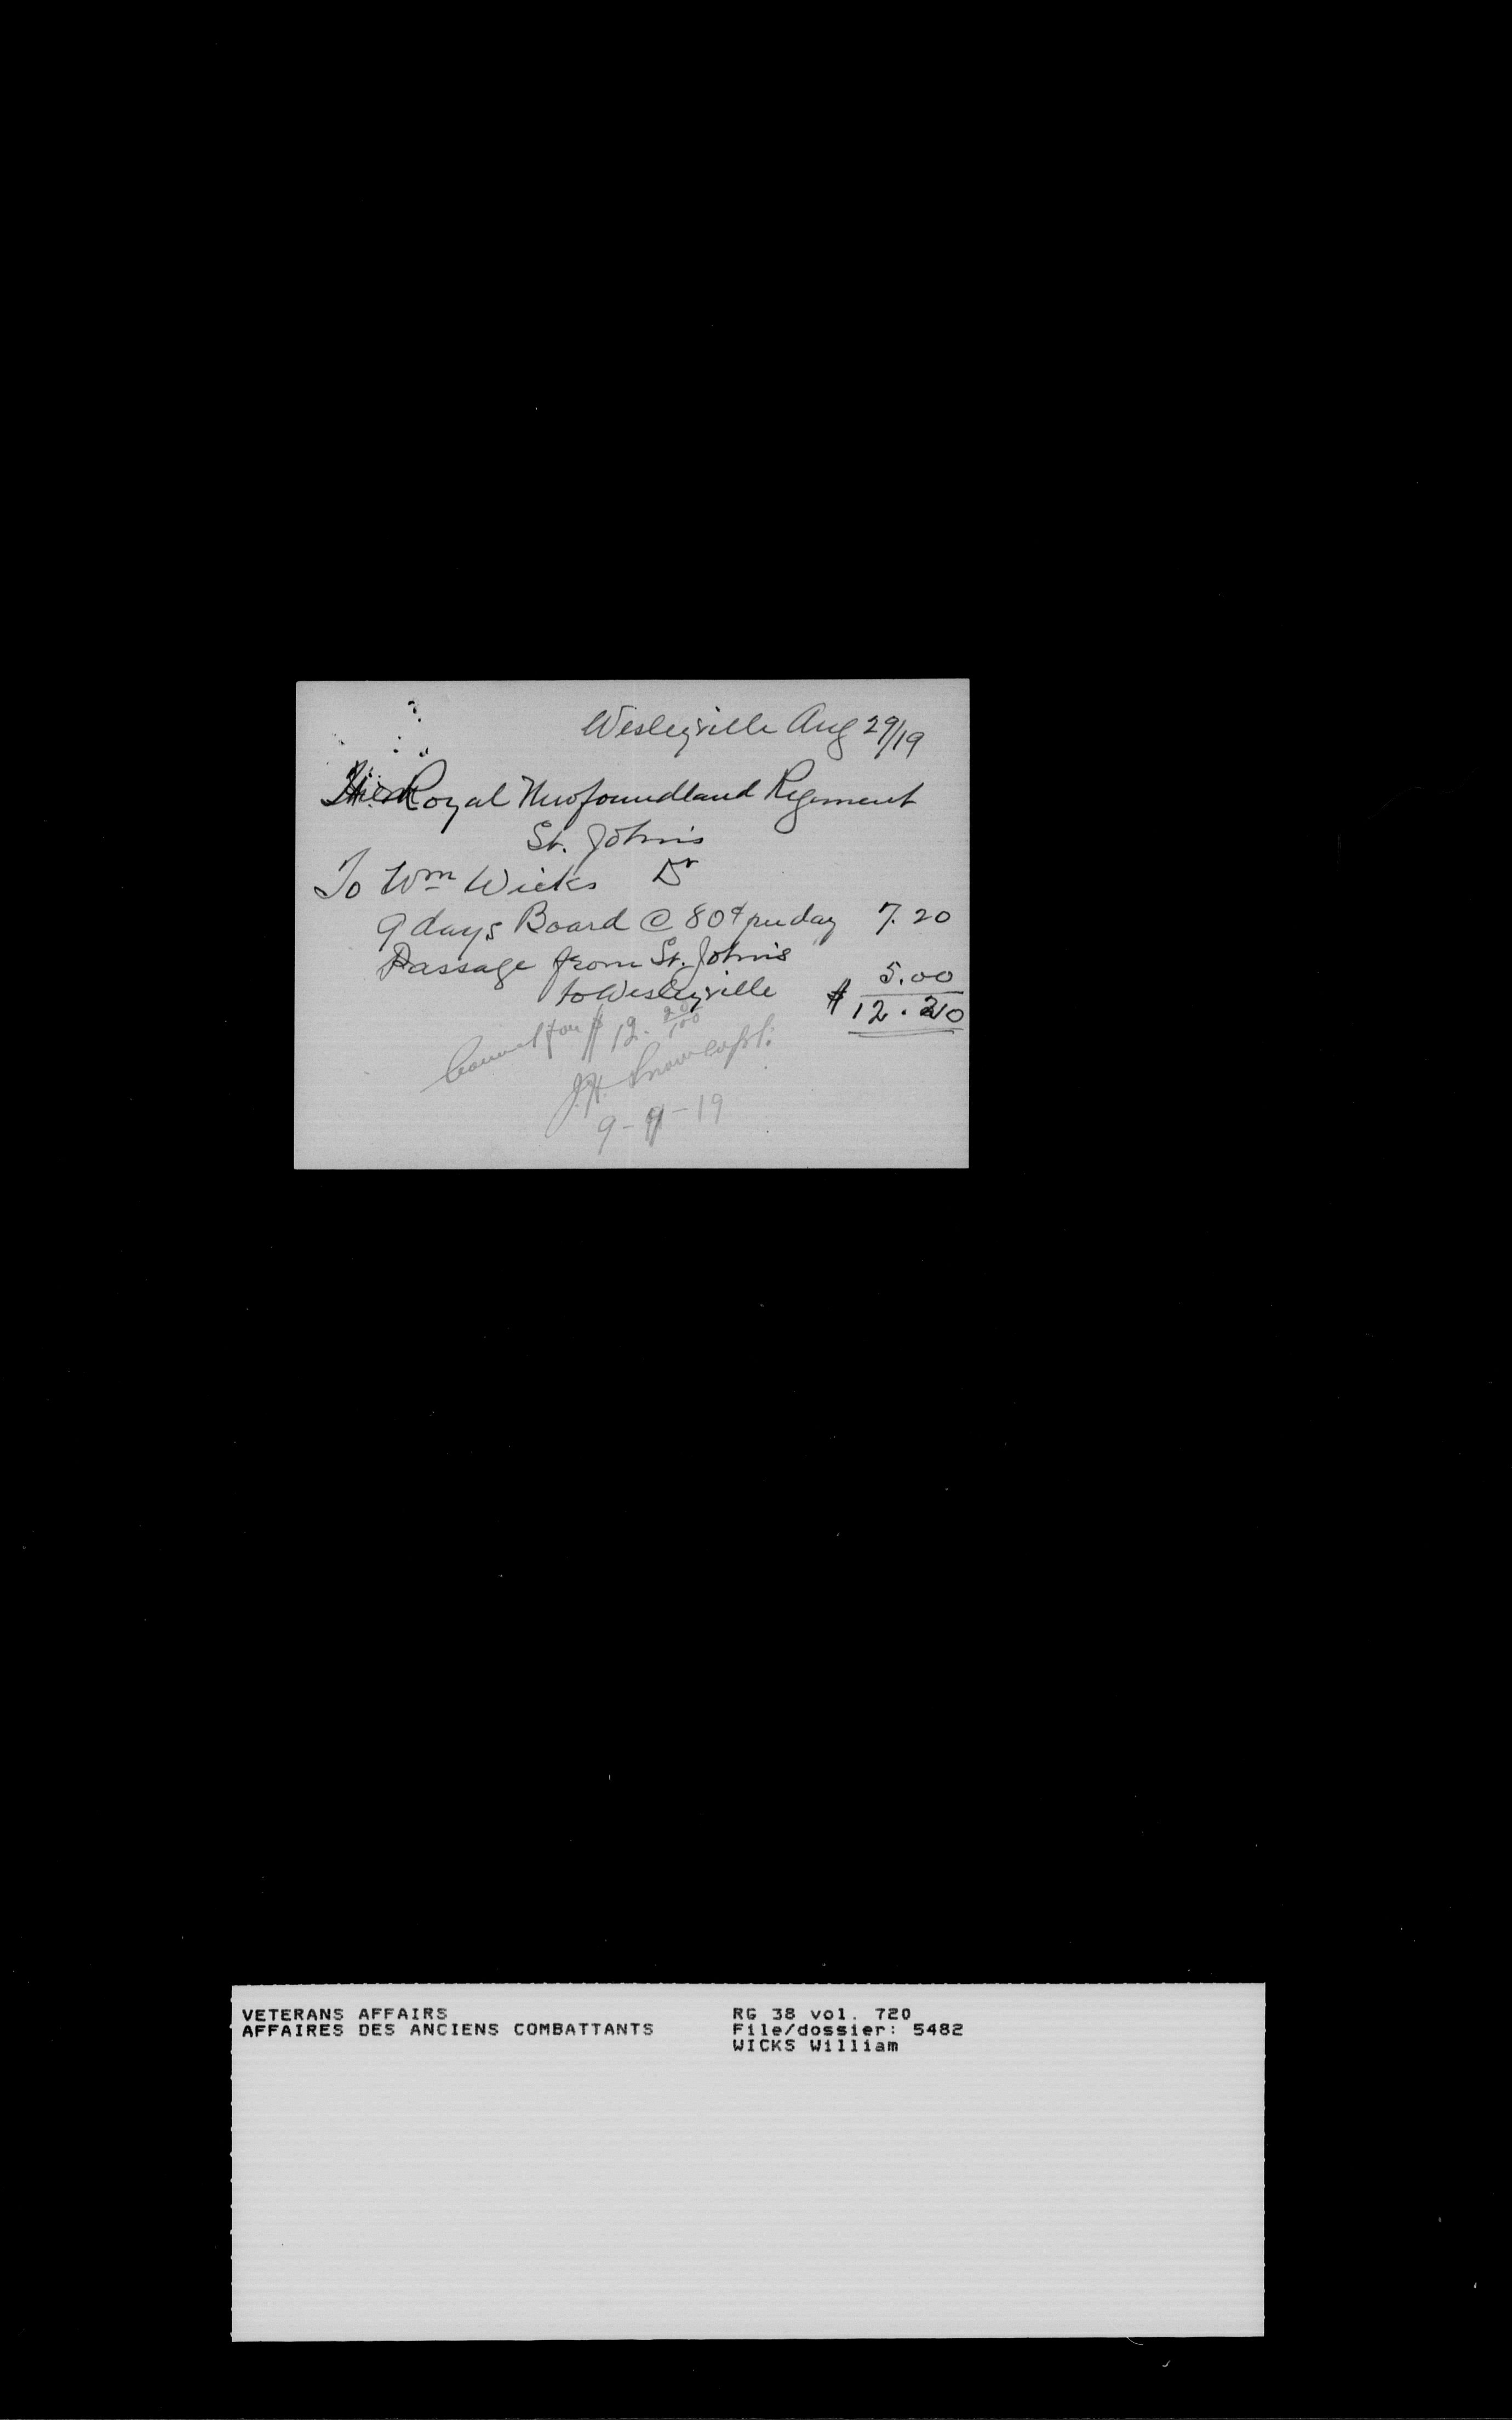 Wesleyville Aug 29/19
The Royal Newfoundland Regiment
St. John's
To Wm Wicks Dr
9 days Board @ 80¢ per day 7.20
Passage from St. John's
to Wesleyville 5.00
$12.20
Correct for $12.20/100
J.H. Snow Capt.
9-9-19
VETERANS AFFAIRS
AFFAIRES DES ANCIENS COMBATTANTS
RG 38 vol. 720
File/dossier: 5482
WICKS William